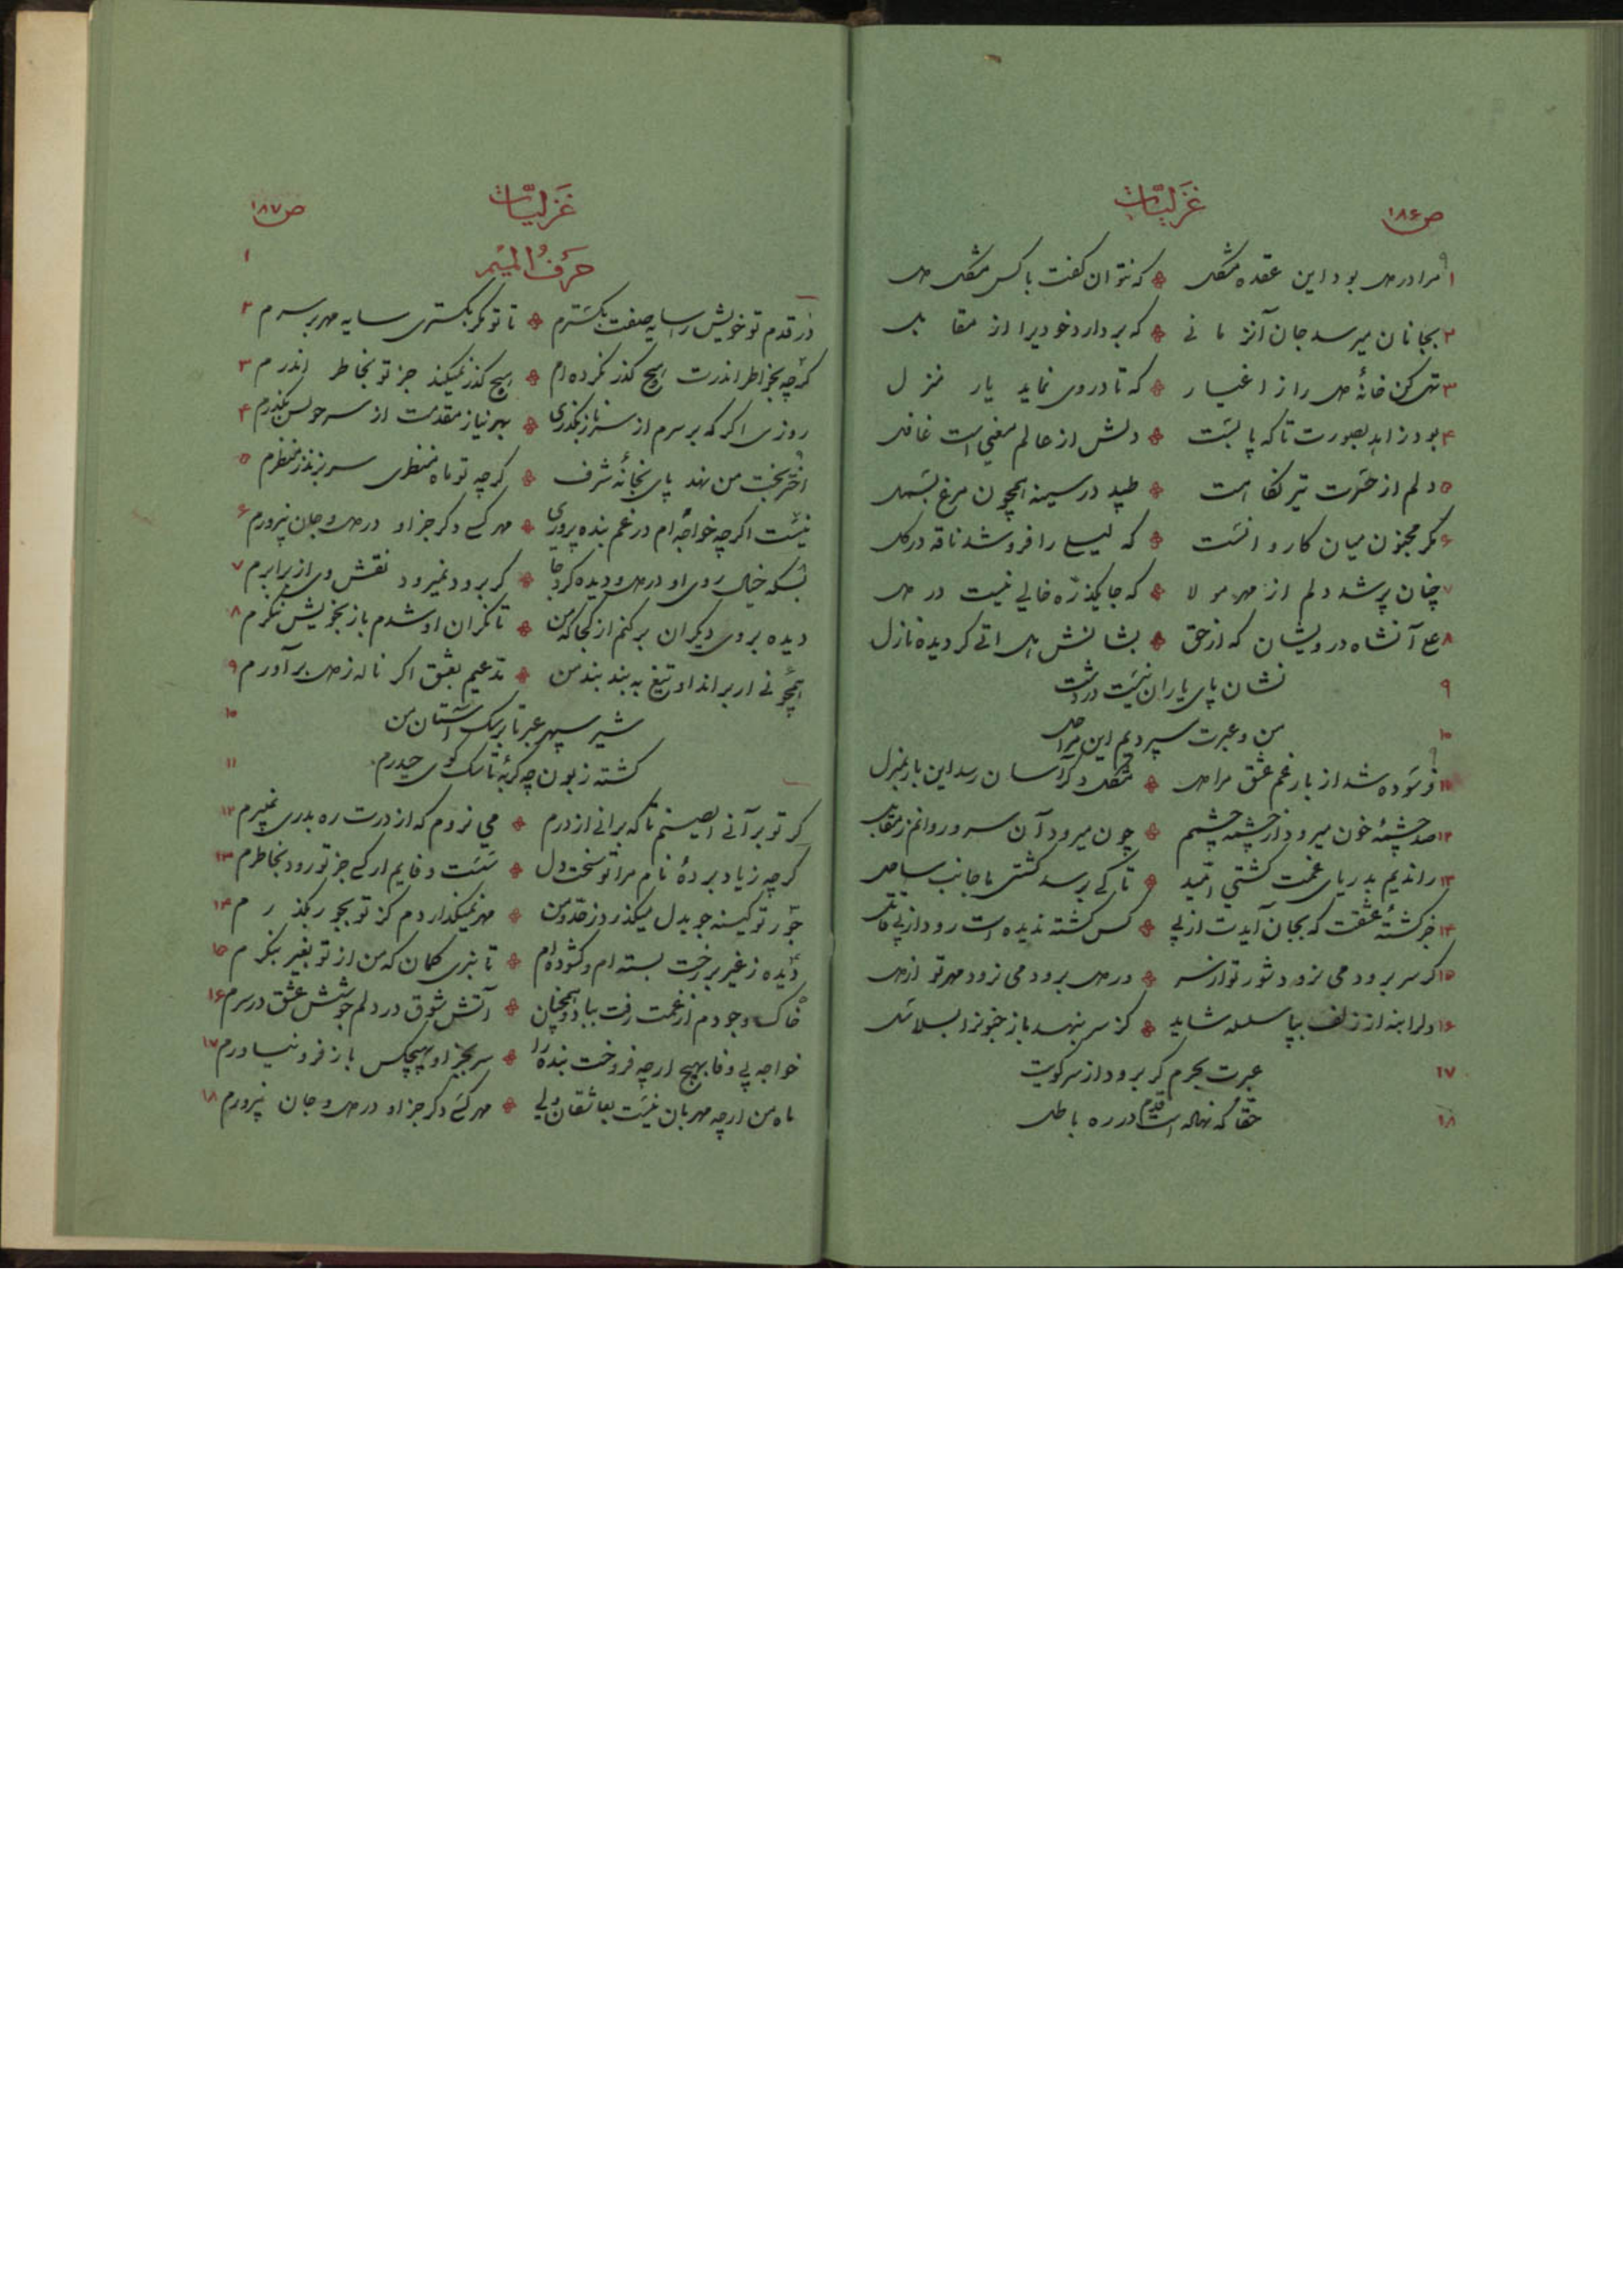 ص ۱۸۶
غزلیات
۱ مرا در دل بود این عقده مشکل ❖ که نتوان گفت با کس مشکل دل
۲ بجانان میرسد جان آنزمانی ❖ که بردارد خودیرا از مقابل
۳ تهی کن خانهٔ دل را ز اغیار ❖ که تا دروی نماید یار منزل
۴ بود زاهد بصورت تا که پابست ❖ دلش از عالم معنی است غافل
۵ دلم از حسرت تیر نگاهت ❖ طپد در سینه همچون مرغ بسمل
۶ مکر مجنون میان کاروانست ❖ که لیلی را فروشد ناقه در کل
۷ چنان پر شد دلم از مهر مولا ❖ که جا یکذره خالی نیست در دل
۸ ع آنشاه درویشان که از حق ❖ بشانش هل اتی کردیده نازل
۹ نشان پای یاران نیست در دشت
۱۰ من و عبرت سپردیم این مراحل
۱۱ فرسوده شد از بار غم عشق مرا دل ❖ مشکل دکر آسان رسد این بار بمنزل
۱۲ صد چشمهٔ خون میرود از چشمه چشمم ❖ چون میرود آن سرو روانم ز مقابل
۱۳ راندیم بدریای غمت کشتی امید ❖ تا کی برسد کشتی ما جانب ساحل
۱۴ جز کشتهٔ عشقت که بجان آیدت از پی ❖ کس کشته ندیده است رود از پی قاتل
۱۵ کر سر برود می نرود شور تو از سر ❖ ور دل برود می نرود مهر تو از دل
۱۶ دلرا بنه از زلف بپا سلسله شاید ❖ کز سر بنهد باز جنونرا بسلاسل
۱۷ عبرت بحرم کر برود از سر کویت
۱۸ حقا که نهاده است قدم در ره باطل
ص ۱۸۷
غزلیات
۱ حرف المیم
در قدم تو خویش را سایه صفت بکسترم ❖ تا تو مکر بکستری سایه مهر بر سرم ۲
کرچه بخاطر اندرت هیچ کذر نکرده ام ❖ هیچ کذر نمیکند جز تو بخاطر اندرم ۳
روزی اکر که بر سرم از سر ناز بکذری ❖ بهر نیاز مقدمت از سر خویش بکذرم ۴
اختر بخت من نهد پای بخانهٔ شرف ❖ کرچه تو ماه منظری سر بزند ز منظرم ۵
نیست اکرچه خواجه ام در غم بنده پروری ❖ مهر کسی دکر جز او در دل و جان نپرورم ۶
بسکه خیال روی او در دل و دیده کرد جا ❖ کر برود نمیرود نقش وی از برابرم ۷
دیده بروی دیکران برکنم از کجا که من ❖ تا نکران او شدم باز بخویش ننکرم ۸
همچو نی ار براند او تیغ به بند بند من ❖ مدعیم بعشق اکر ناله ز دل برآورم ۹
شیر سپهر عبرتا بر سک آستان من ۱۰
کشته زبون چو کربهٔ تا سک کوی حیدرم ۱۱
کر تو برآنی ایصنم تا که برانی از درم ❖ می نروم که از درت ره بدری نمیبرم ۱۲
کرچه ز یاد بردهٔ نام مرا تو سخت دل ❖ سست وفایم ار کسی جز تو رود بخاطرم ۱۳
جور تو کینه جو بدل میکذرد ز حد و من ❖ مهر نمیکذاردم کز تو بجور بکذرم ۱۴
دیده ز غیر بر رخت بسته ام و کشوده ام ❖ تا نبری کمان که من از تو بغیر بنکرم ۱۵
خاک وجودم از غمت رفت بباد و همچنان ❖ آتش شوق در دلم جوشش عشق در سرم ۱۶
خواجه بی وفا بهیچ ارچه فروخت بنده را ❖ سر بجز او بهیچکس باز فرو نیاورم ۱۷
ماه من ارچه مهربان نیست بعاشقان ولی ❖ مهر کسی دکر جز او در دل و جان نپرورم ۱۸